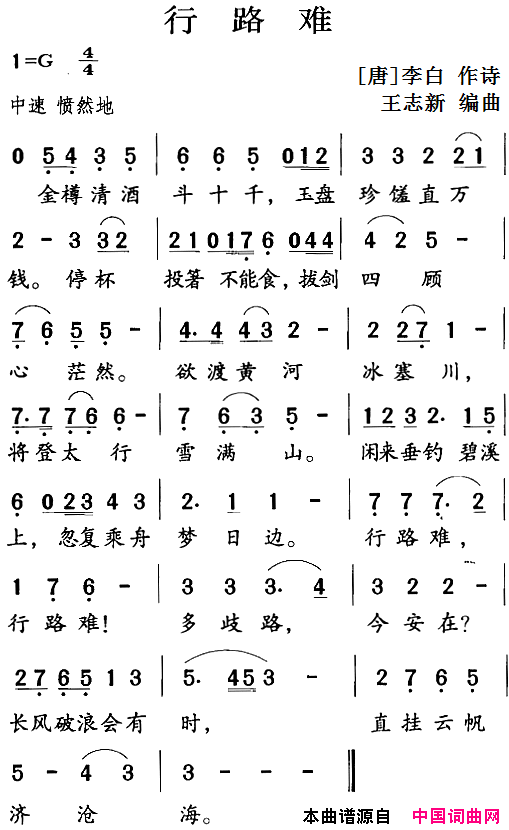 行路难
1=G 4/4
[唐]李白 作诗
中速 愤然地
王志新 编曲
0 5 4 3 5 | 6 6 5 0 1 2 | 3 3 2 2 1 |
金樽清酒 斗十千，玉盘 珍馐直万
2 - 3 3 2 | 2 1 0 1 7 6 0 4 4 | 4 2 5 - |
钱。停杯 投箸 不能食，拔剑 四顾
7 6 5 5 - | 4. 4 4 4 3 2 - | 2 2 7 1 - |
心茫然。 欲渡黄河 冰塞川，
7. 7 7 6 6 - | 7 6 3 5 - | 1 2 3 2. 1 5 |
将登太行 雪满山。 闲来垂钓 碧溪
6 0 2 3 4 3 | 2. 1 1 - | 7 7 7. 2 |
上，忽复乘舟 梦日边。 行路难，
1 7 6 - | 3 3 3. 4 | 3 2 2 - |
行路难！ 多歧路， 今安在？
2 7 6 5 1 3 | 5. 4 5 3 - | 2 7 6 5 |
长风破浪会有 时， 直挂云帆
5 - 4 3 | 2 - - - ‖
济沧 海。
本曲谱源自 中国词曲网